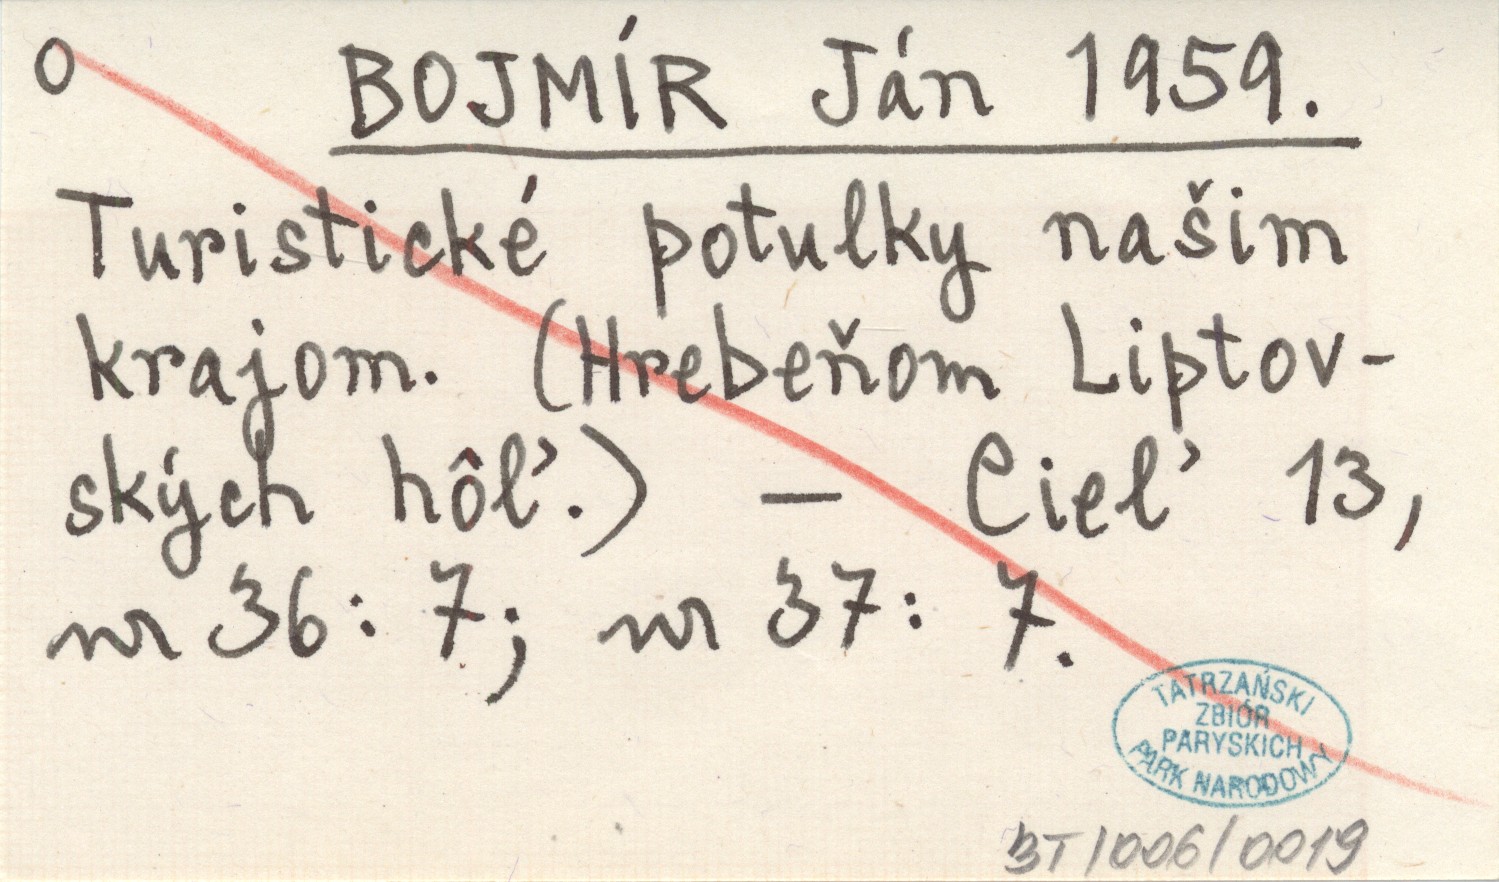 O BOJMÍR Ján 1959.
Turistické potulky našim
krajom. (Hrebeňom Liptov-
ských hôľ.) — Cieľ 13,
nr 36: 7; nr 37: 7.
TATRZAŃSKI
ZBIÓR
PARYSKICH
PARK NARODOWY
BT/006/0019